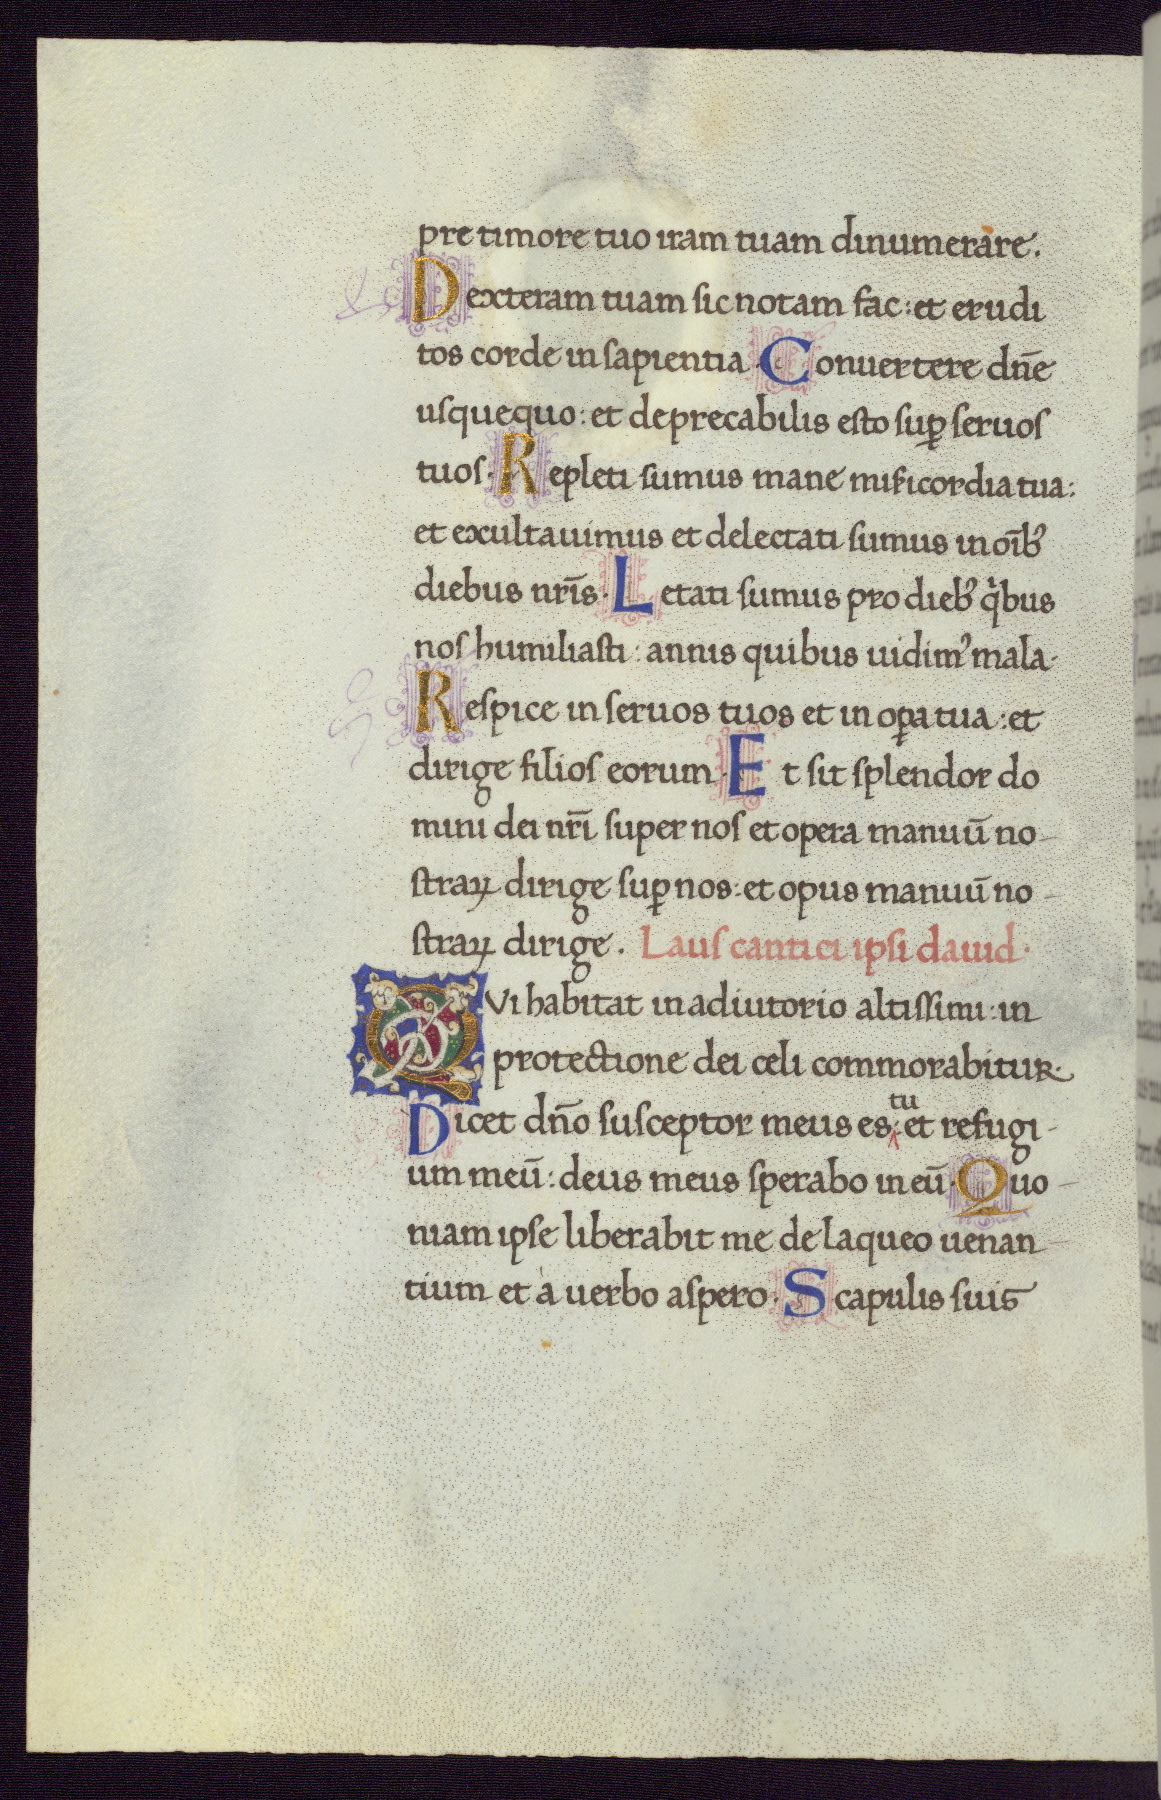 pre timore tuo iram tuam dinumerare.
Dexteram tuam sic notam fac: et erudi
tos corde in sapientia. Conuertere dn̄e
usquequo: et deprecabilis esto suꝑ seruos
tuos. Repleti sumus mane mis̄icordia tua:
et exultauimus et delectati sumus in oībꝰ
diebus nr̄is. Letati sumus pro diebꝰ qͥbus
nos humiliasti: annis quibus uidimꝰ mala.
Respice in seruos tuos et in oꝑa tua: et
dirige filios eorum. Et sit splendor do
mini dei nr̄i super nos et opera manuū no-
straꝝ dirige suꝑ nos: et opus manuū no-
straꝝ dirige. Laus cantici ipsi dauid.
QVi habitat in adiutorio altissimi: in
protectione dei celi commorabitur.
Dicet dn̄o susceptor meus es tu: et refugi-
um meū: deus meus sperabo in eū. Quo-
niam ipse liberabit me de laqueo uenan-
tium et à uerbo aspero. Scapulis suis